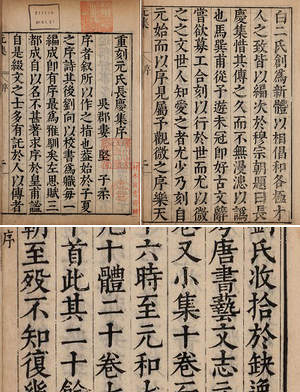 重刻元氏長慶集序
吳郡婁堅子柔
序者敘所以作之指也蓋始於子夏
之序詩其後劉向以校書為職每一
編成即有序最為雅馴矣左思賦三
都成自以名不甚著求序於皇甫謐
自是綴文之士多有託於人以傳者
白二氏創為新體以相倡和各極才
人之致皆以編次於穆宗朝題曰長
慶集惜其傳之久而不無漫漶以譌
也馬巽甫從子游未冠即好古文辭
嘗欲募工合刻以行於世而尤以微
之之文世人知愛之者尤少乃刻自
元始而以序見屬予觀微之序樂天
劉氏收拾於缺逸
考唐書藝文志元
卷又小集十卷至
六時至元和七
凡十體二十卷七
十首此其二十餘
朝至歿不知復幾
序